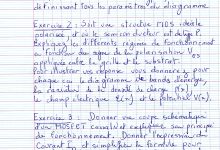 définissant tous les paramètres du diagramme
Exercice 2 : Soit une structure MOS idéale
polarisée, et où le semiconducteur est de type P.
Expliquez les différents régions de fonctionnement
en fonction du signe de la polarisation VG
appliquée entre la grille et le substrat.
Pour illustrer vos réponses vous donnerez, pour
chaque cas le diagramme de bandes d'énergie,
la variation de la densité de charge ρ(x),
le champ électrique E(x) et le potentiel V(x).
Exercice 3 : Donner une coupe schématique
d'un MOSFET canal n et expliquer son principe
de fonctionnement. Donner l'expression du
courant ID et simplifier la formule pour